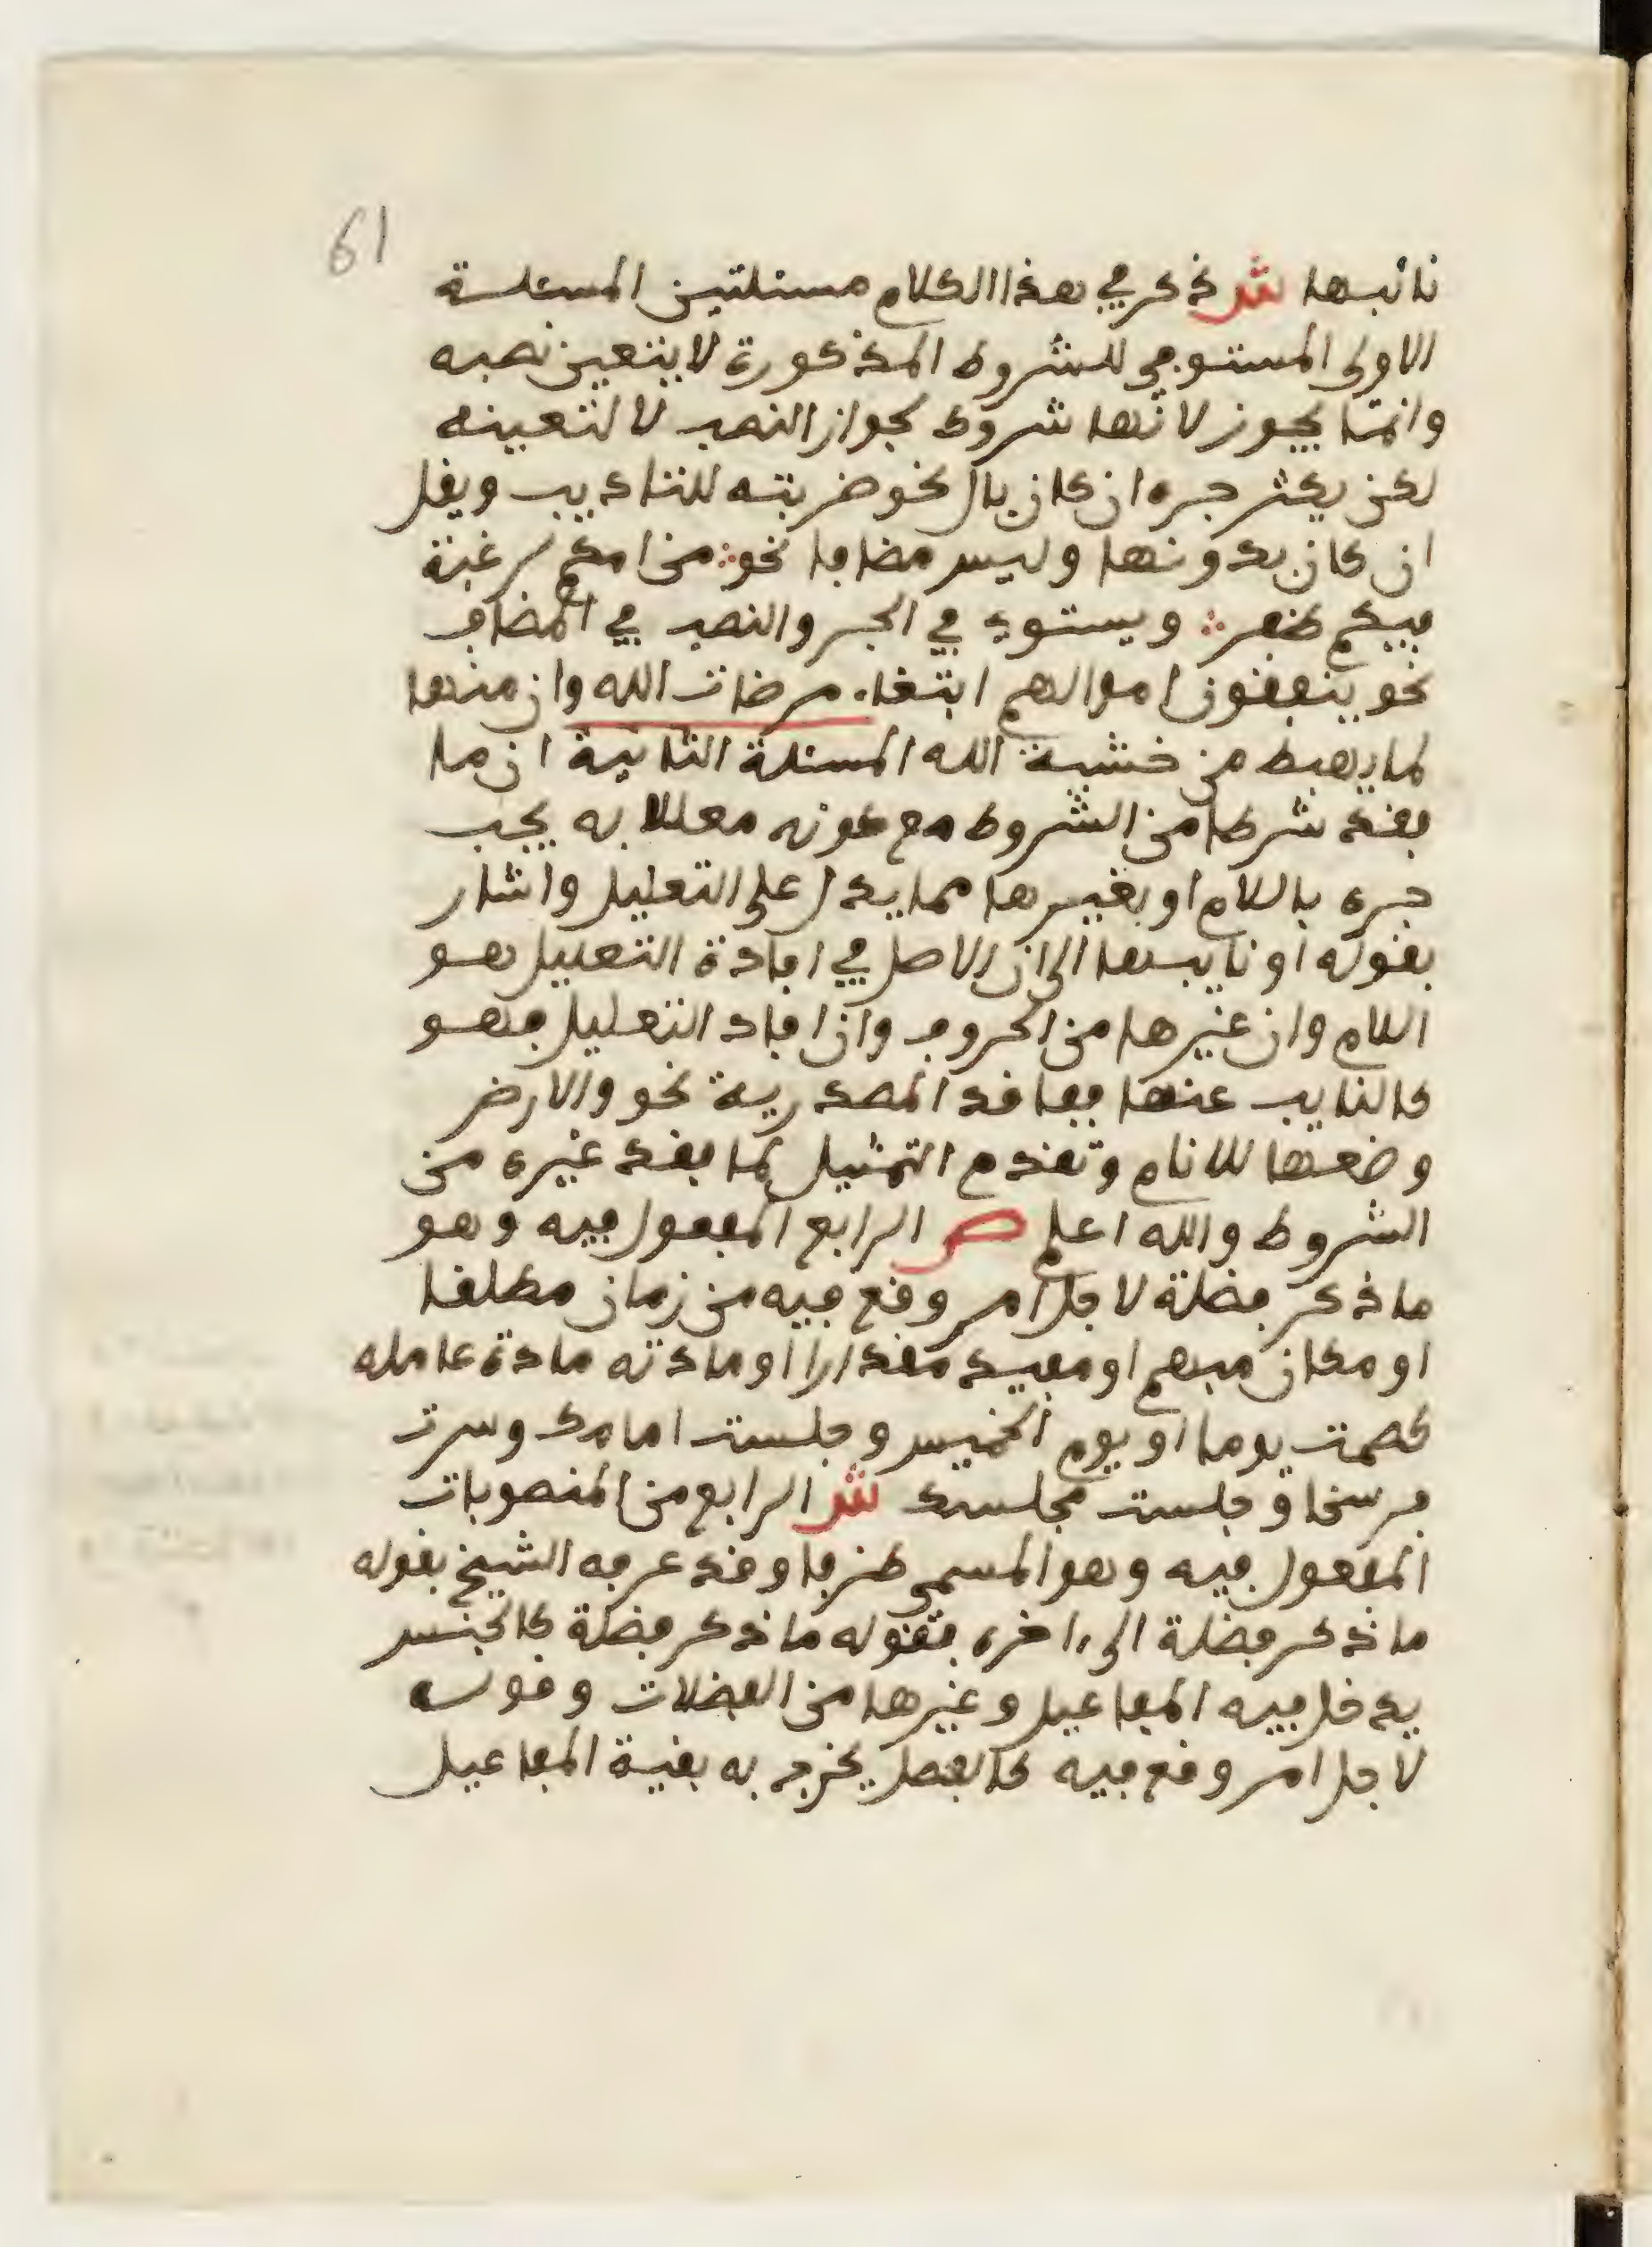 61
نائبها ش ذكر في هذا الكلام مسئلتين المسئلة
الاولى المستوفي للشروط المذكورة لا يتعين نصبه
وانما يجوز لانها شروط لجواز النصب لا لتعينه
لكن يكثر جره ان كان بال نحو ضربته للتاديب ويقل
ان كان بدونها وليس مضافا نحو من امكم لرغبة
فيكم ظفر ويستوي في الجر والنصب في المضاف
نحو ينفقون اموالهم ابتغاء مرضات الله وان منها
لما يهبط من خشية الله المسئلة الثانية ان ما
فقد شرطا من الشروط مع كونه معللا به يجب
جره باللام او بغيرها مما يدل على التعليل واشار
بقوله او نايبها الى ان الاصل في افادة التعليل هو
اللام وان غيرها من الحروف وان افاد التعليل فهو
كالنايب عنها ففاقد المصدرية نحو والارض
وضعها للانام وتقدم التمثيل لما فقد غيره من
الشروط والله اعلم ص الرابع المفعول فيه وهو
ما ذكر فضلة لاجل امر وقع فيه من زمان مطلقا
او مكان مبهم او مفيد مقدارا او مادته مادة عامله
كصمت يوما او يوم الخميس وجلست امامك وسرت
فرسخا وجلست مجلسك ش الرابع من المنصوبات
المفعول فيه وهو المسمى ظرفا وقد عرفه الشيخ بقوله
ما ذكر فضلة الى ءاخره فقوله ما ذكر فضلة كالجنس
يدخل فيه المفاعيل وغيرها من الفضلات وقوله
لاجل امر وقع فيه كالفصل يخرج به بقية المفاعيل